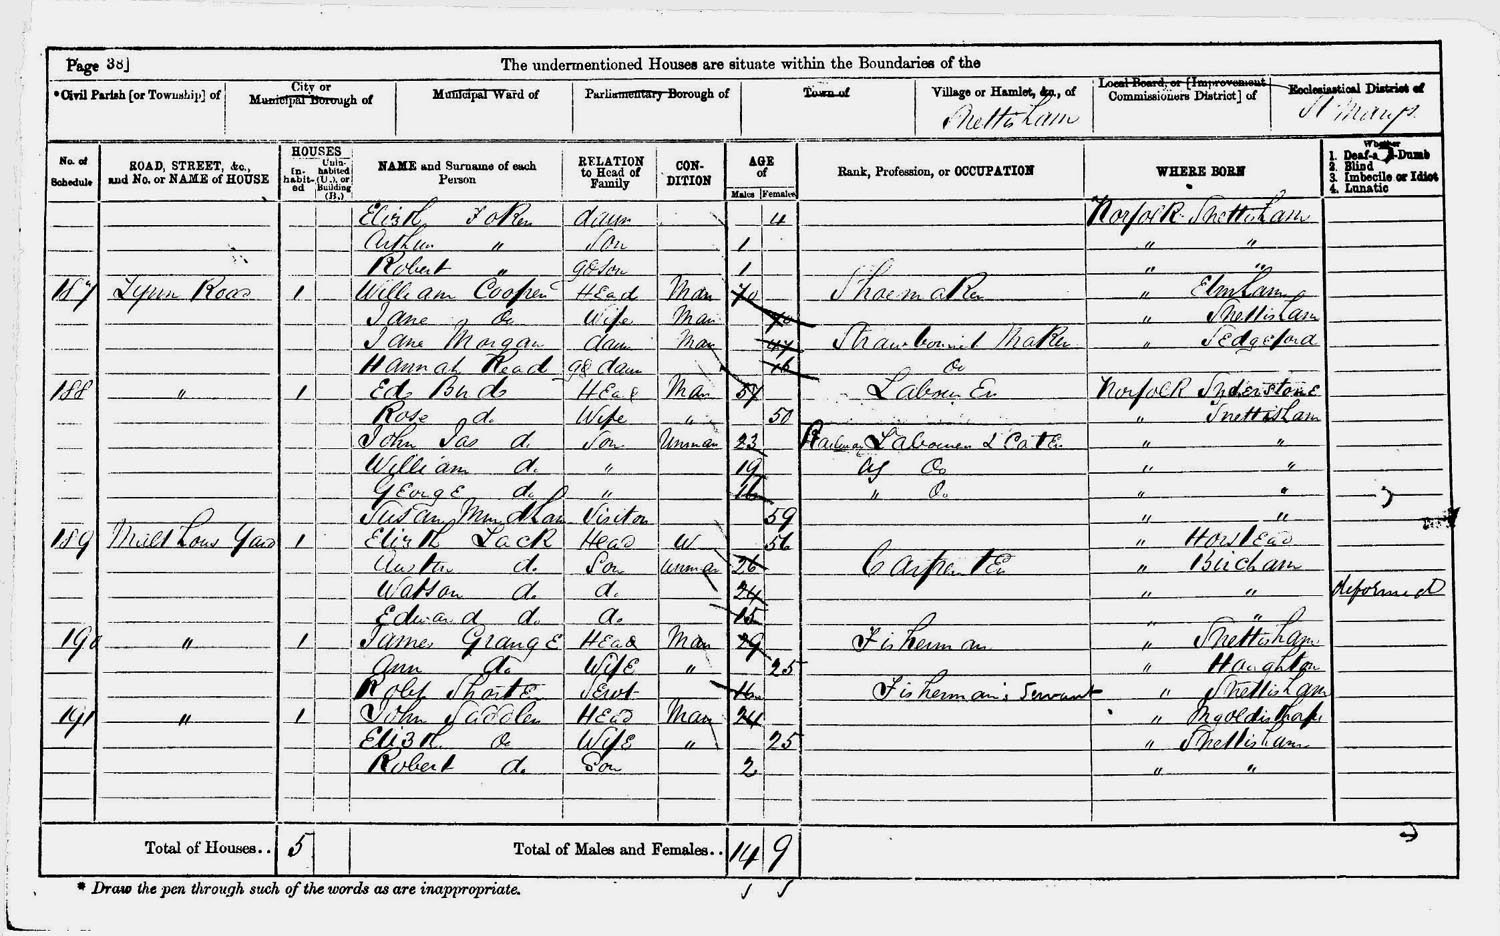 Page 38]
The undermentioned Houses are situate within the Boundaries of the
*Civil Parish [or Township] of
City or Municipal Borough of
Municipal Ward of
Parliamentary Borough of
Town of
Village or Hamlet, &c., of
Local Board, or [Improvement Commissioners District] of
Ecclesiastical District of
Snettisham
St Marys
No. of Schedule
ROAD, STREET, &c., and No. or NAME of HOUSE
HOUSES
In-habit-ed
Unin-habited (U.), or Building (B.)
NAME and Surname of each Person
RELATION to Head of Family
CON-DITION
AGE of
Males
Females
Rank, Profession, or OCCUPATION
WHERE BORN
Whether
1. Deaf-a -Dumb
2. Blind
3. Imbecile or Idiot
4. Lunatic
Elizth daur 4 Norfolk Snettisham
Arthur " Son 1 " "
Robert " gdson 1 " "
187 Lynn Road 1 William Cooper Head Mar 70 Shoemaker " Elmham
Jane Do Wife Mar 70 " Snettisham
Jane Morgan daur Mar 47 Strawbonnet Maker " Sedgeford
Hannah Read gd daur 16 Do
188 " 1 Ed Head Mar 57 Labourer Norfolk
Rose do Wife " 50 " Snettisham
John Jas d. Son Unmar 23 Railway Labourer " "
William d. " 19 Ag Do " "
George d. " 16 " Do " "
Susan Visitor 59 " "
189 Malthous Yard 1 Elizth Lack Head W 56 " Horstead
d. Son Unmar 26 Carpenter " Bircham
Watson d. d. 24 " " deformed
Edward d. d. 15 " "
190 " 1 James Grange Head Mar 29 Fisherman " Snettisham
Ann d. Wife " 25 " Houghton
Robt Shorten Servt 16 Fisherman's Servant " Snettisham
191 " 1 John Saddler Head Mar 24 " Ingoldisthorpe
Elizth Do Wife " 25 " Snettisham
Robert d. Son 2 " "
Total of Houses.. 5
Total of Males and Females.. 14 9
* Draw the pen through such of the words as are inappropriate.